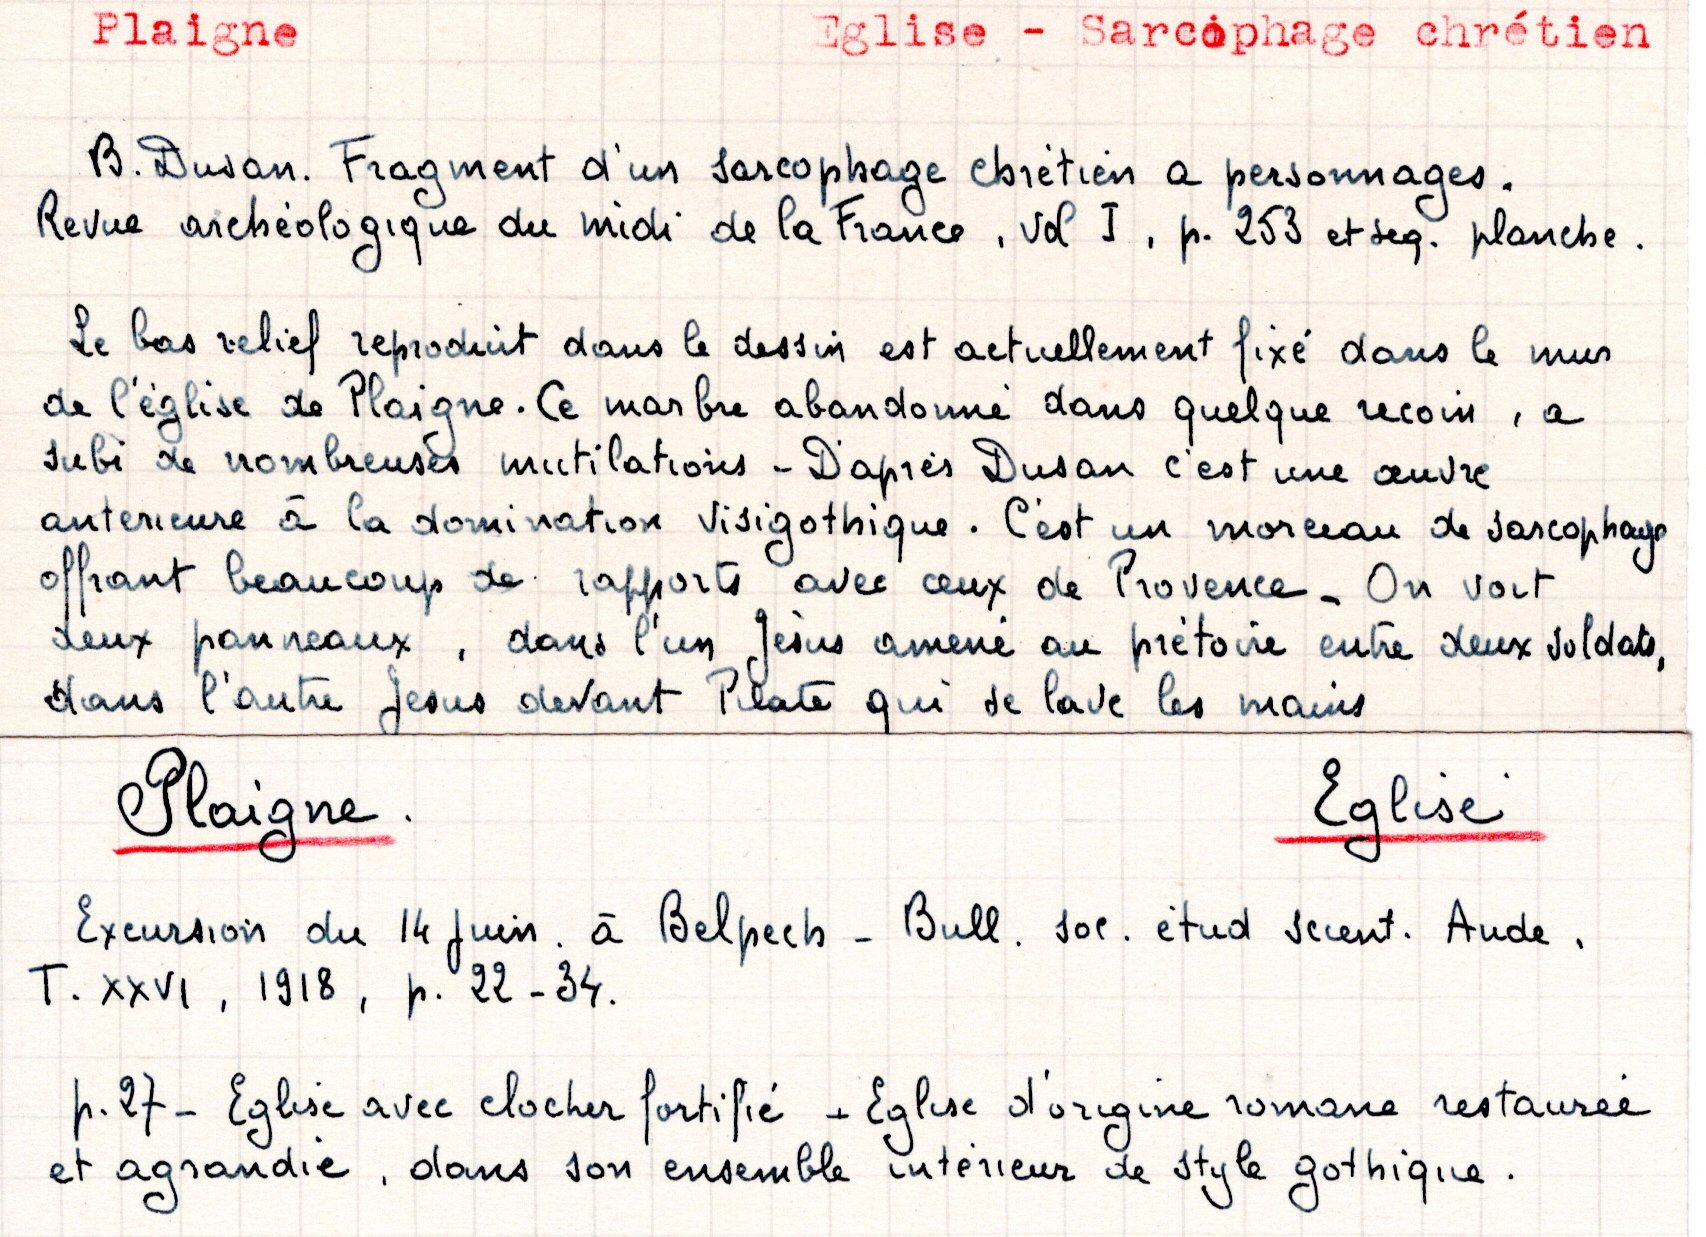 Plaigne Eglise - Sarcophage chrétien
B. Dusan. Fragment d'un sarcophage chrétien a personnages.
Revue archéologique du midi de la France, vol I, p. 253 et seq. planche.
Le bas relief reproduit dans le dessin est actuellement fixé dans le mur
de l'église de Plaigne. Ce marbre abandonné dans quelque recoin, a
subi de nombreuses mutilations - D'après Dusan c'est une œuvre
anterieure à la domination visigothique. C'est un morceau de sarcophage
offrant beaucoup de rapports avec ceux de Provence - On voit
deux panneaux, dans l'un Jésus amené au prétoire entre deux soldats,
dans l'autre Jesus devant Pilate qui se lave les mains
Plaigne. Eglise
Excursion du 14 juin. à Belpech - Bull. soc. étud scient. Aude.
T. XXVI, 1918, p. 22-34.
p. 27 - Eglise avec clocher fortifié - Eglise d'origine romane restaurée
et agrandie, dans son ensemble intérieur de style gothique.